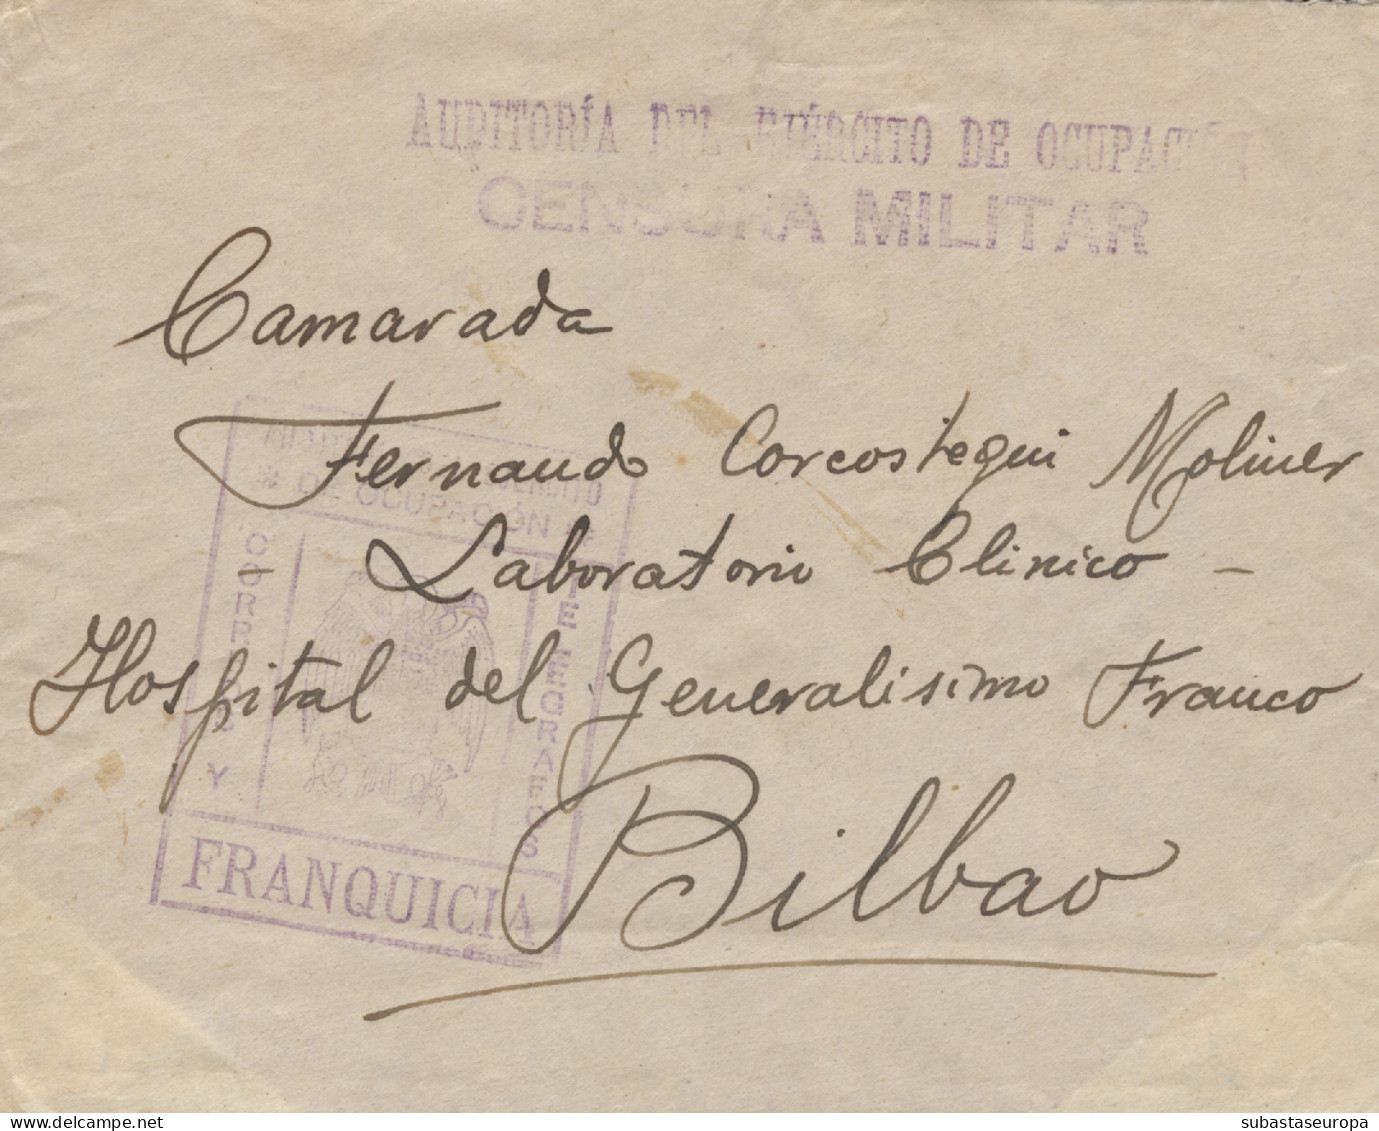 AUDITORÍA DEL EJÉRCITO DE OCUPACIÓN
CENSURA MILITAR
Camarada
Fernando Corcostegui Moliner
Laboratorio Clinico -
Hospital del Generalisimo Franco
Bilbao
AUDITORÍA DEL EJÉRCITO
* DE OCUPACIÓN *
CORREOS
Y
TELEGRAFOS
FRANQUICIA
subastaseuropa